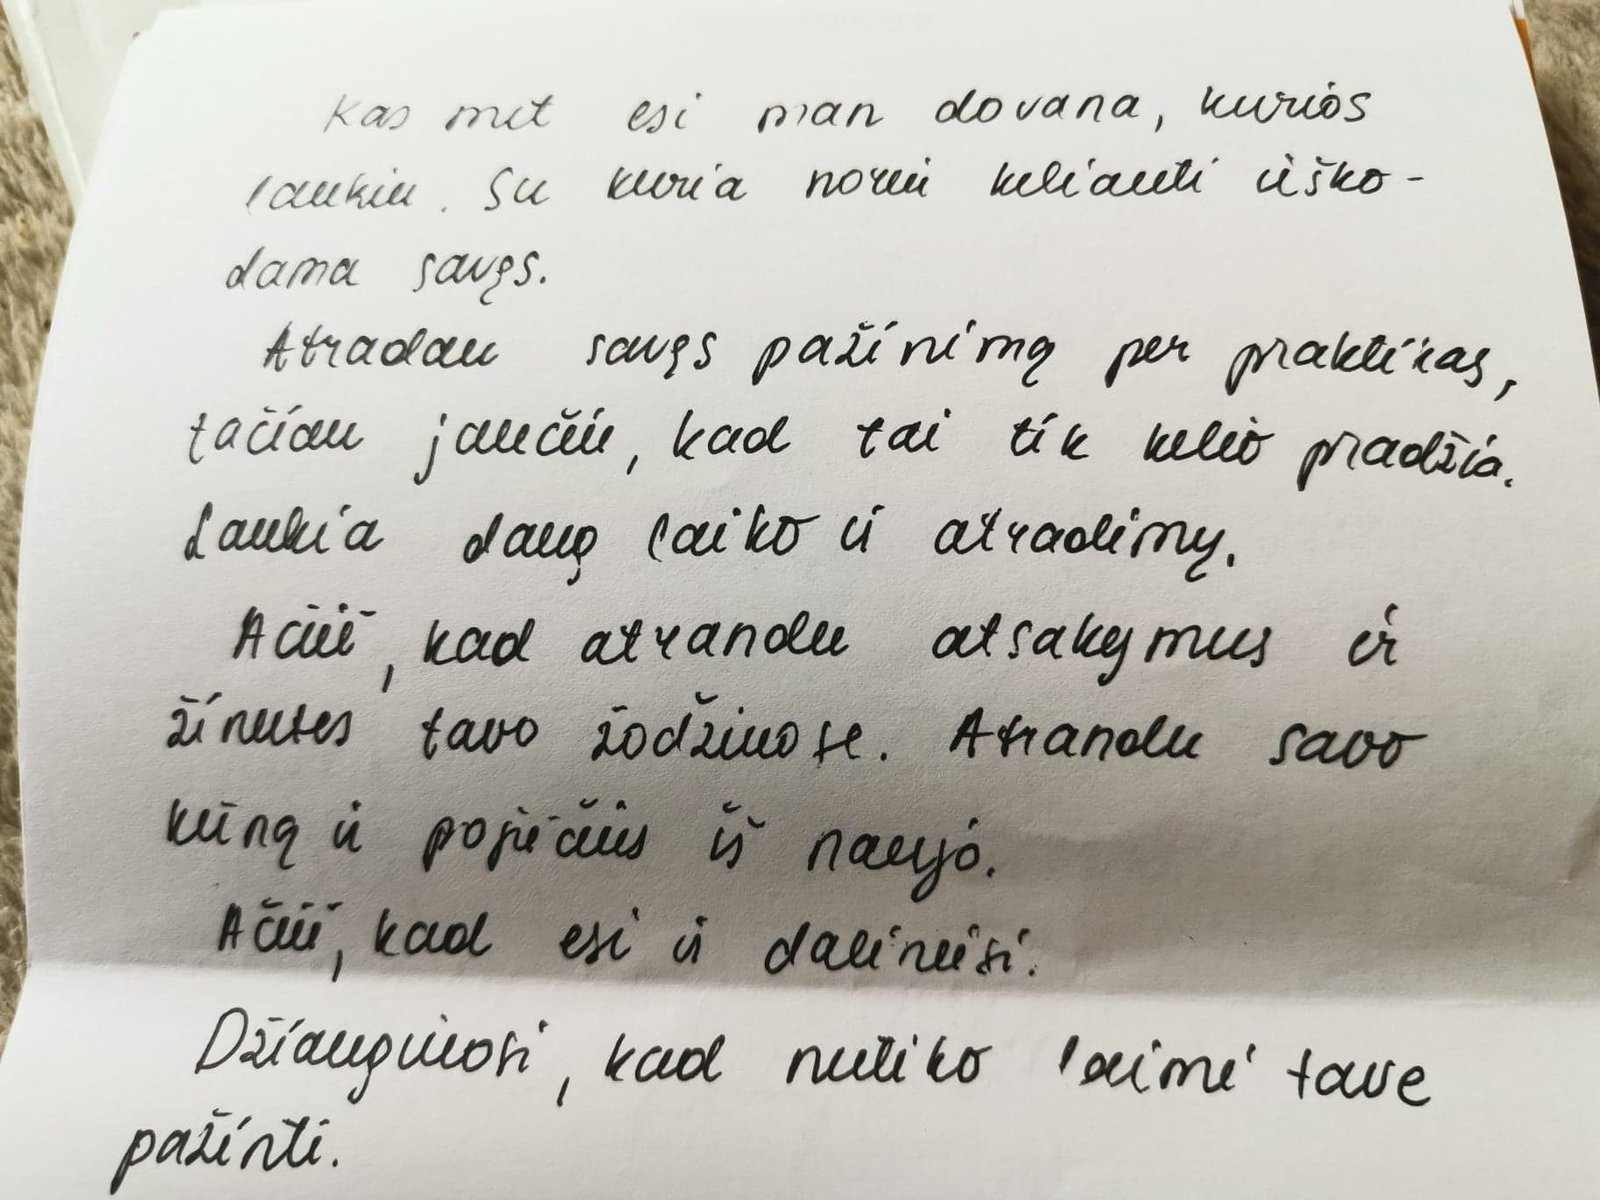 Kas met esi man dovana, kurios
laukiu. Su kuria noriu keliauti ieško-
dama savęs.
Atradau savęs pažinimą per praktikas,
tačiau jaučiu, kad tai tik kelio pradžia.
Laukia daug laiko ir atradimų.
Ačiū, kad atrandu atsakymus ir
žinutes tavo žodžiuose. Atrandu savo
kūną ir pojūčius iš naujo.
Ačiū, kad esi ir daliniesi.
Džiaugiuosi, kad nutiko laimė tave
pažinti.